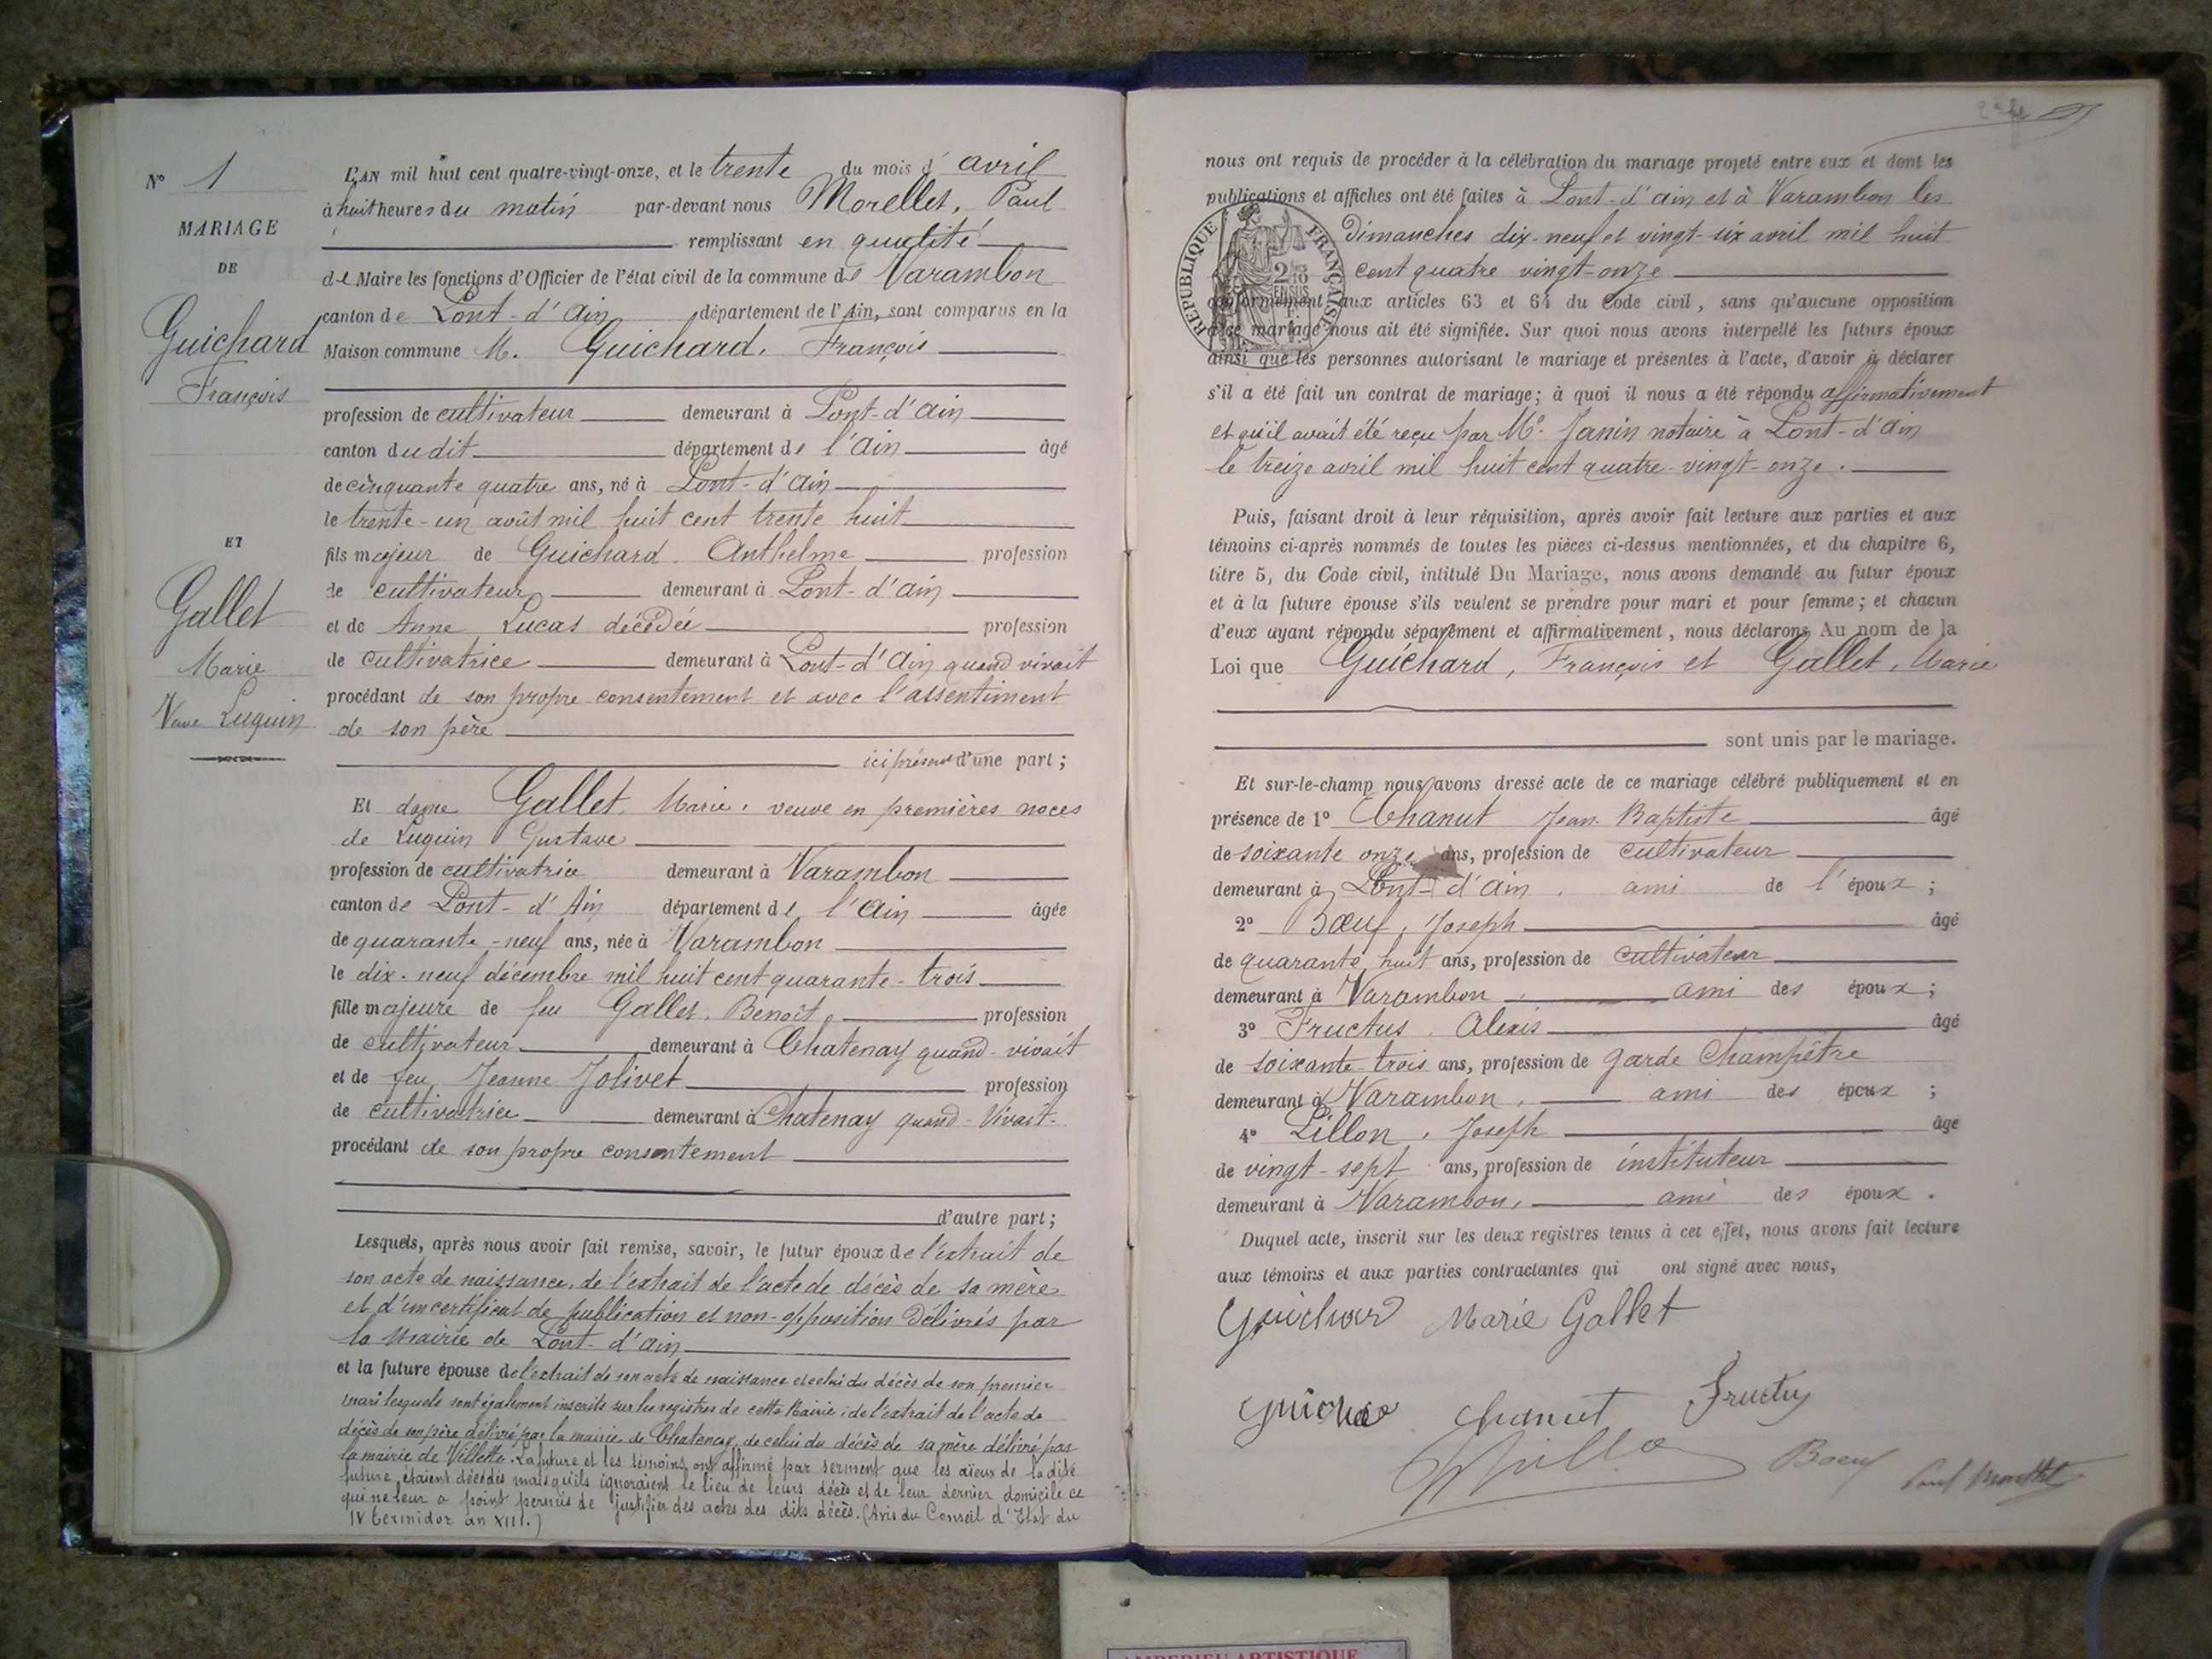 N° 1
MARIAGE
DE
Guichard
François
ET
Gallet
Marie
Veuve Luquin
L'AN mil huit cent quatre-vingt-onze, et le trente du mois d'avril
à huit heures du matin par-devant nous Morellet, Paul
remplissant en qualité
de Maire les fonctions d'Officier de l'état civil de la commune de Varambon
canton de Pont-d'Ain département de l'Ain, sont comparus en la
Maison commune M. Guichard, François
profession de cultivateur demeurant à Pont-d'Ain
canton dudit département de l'Ain âgé
de cinquante quatre ans, né à Pont-d'Ain
le trente-un août mil huit cent trente huit
fils majeur de Guichard Anthelme profession
de cultivateur demeurant à Pont-d'Ain
et de Anne Lucas décédée profession
de cultivatrice demeurant à Pont-d'Ain quand vivait
procédant de son propre consentement et avec l'assentiment
de son père
ici présent d'une part ;
Et dame Gallet, Marie, veuve en premières noces
de Luquin Gustave
profession de cultivatrice demeurant à Varambon
canton de Pont-d'Ain département de l'Ain âgée
de quarante-neuf ans, née à Varambon
le dix-neuf décembre mil huit cent quarante-trois
fille majeure de feu Gallet, Benoît, profession
de cultivateur demeurant à Chatenay quand vivait
et de feu Jeanne Jolivet profession
de cultivatrice demeurant à Chatenay quand vivait.
procédant de son propre consentement
d'autre part ;
Lesquels, après nous avoir fait remise, savoir, le futur époux de l'extrait de
son acte de naissance, de l'extrait de l'acte de décès de sa mère
et d'un certificat de publication et non-opposition délivrés par
la Mairie de Pont-d'Ain
et la future épouse de l'extrait de son acte de naissance et celui du décès de son premier
mari lesquels sont également inscrits sur les registres de cette Mairie ; de l'extrait de l'acte de
décès de son père délivré par la mairie de Chatenay, de celui du décès de sa mère délivré par
la mairie de Villette. La future et les témoins ont affirmé par serment que les aïeux de la dite
future étaient décédés mais qu'ils ignoraient le lieu de leurs décès et de leur dernier domicile ce
qui ne leur a point permis de justifier des actes des dits décès. (Avis du Conseil d'Etat du
IV termidor an XIII.)
nous ont requis de procéder à la célébration du mariage projeté entre eux et dont les
publications et affiches ont été faites à Pont-d'Ain et à Varambon les
Dimanches dix-neuf et vingt-six avril mil huit
cent quatre vingt-onze
conformément aux articles 63 et 64 du Code civil, sans qu'aucune opposition
à ce mariage nous ait été signifiée. Sur quoi nous avons interpellé les futurs époux
ainsi que les personnes autorisant le mariage et présentes à l'acte, d'avoir à déclarer
s'il a été fait un contrat de mariage ; à quoi il nous a été répondu affirmativement
et qu'il avait été reçu par Me Janin notaire à Pont-d'Ain
le treize avril mil huit cent quatre-vingt-onze.
RÉPUBLIQUE FRANÇAISE
Puis, faisant droit à leur réquisition, après avoir fait lecture aux parties et aux
témoins ci-après nommés de toutes les pièces ci-dessus mentionnées, et du chapitre 6,
titre 5, du Code civil, intitulé Du Mariage, nous avons demandé au futur époux
et à la future épouse s'ils veulent se prendre pour mari et pour femme ; et chacun
d'eux ayant répondu séparément et affirmativement, nous déclarons Au nom de la
Loi que Guichard, François et Gallet, Marie
sont unis par le mariage.
Et sur-le-champ nous avons dressé acte de ce mariage célébré publiquement et en
présence de 1° Chanut Jean-Baptiste âgé
de soixante onze ans, profession de cultivateur
demeurant à Pont-d'Ain, ami de l'époux ;
2° Bœuf, Joseph âgé
de quarante huit ans, profession de cultivateur
demeurant à Varambon, ami des époux ;
3° Fructus, Alexis âgé
de soixante-trois ans, profession de garde champêtre
demeurant à Varambon, ami des époux ;
4° Pillon, Joseph âgé
de vingt-sept ans, profession de instituteur
demeurant à Varambon, ami des époux.
Duquel acte, inscrit sur les deux registres tenus à cet effet, nous avons fait lecture
aux témoins et aux parties contractantes qui ont signé avec nous,
Guichard Marie Gallet
Chanut Fructus
Boeuf Paul Morellet
AMBERIEU ARTISTIQUE